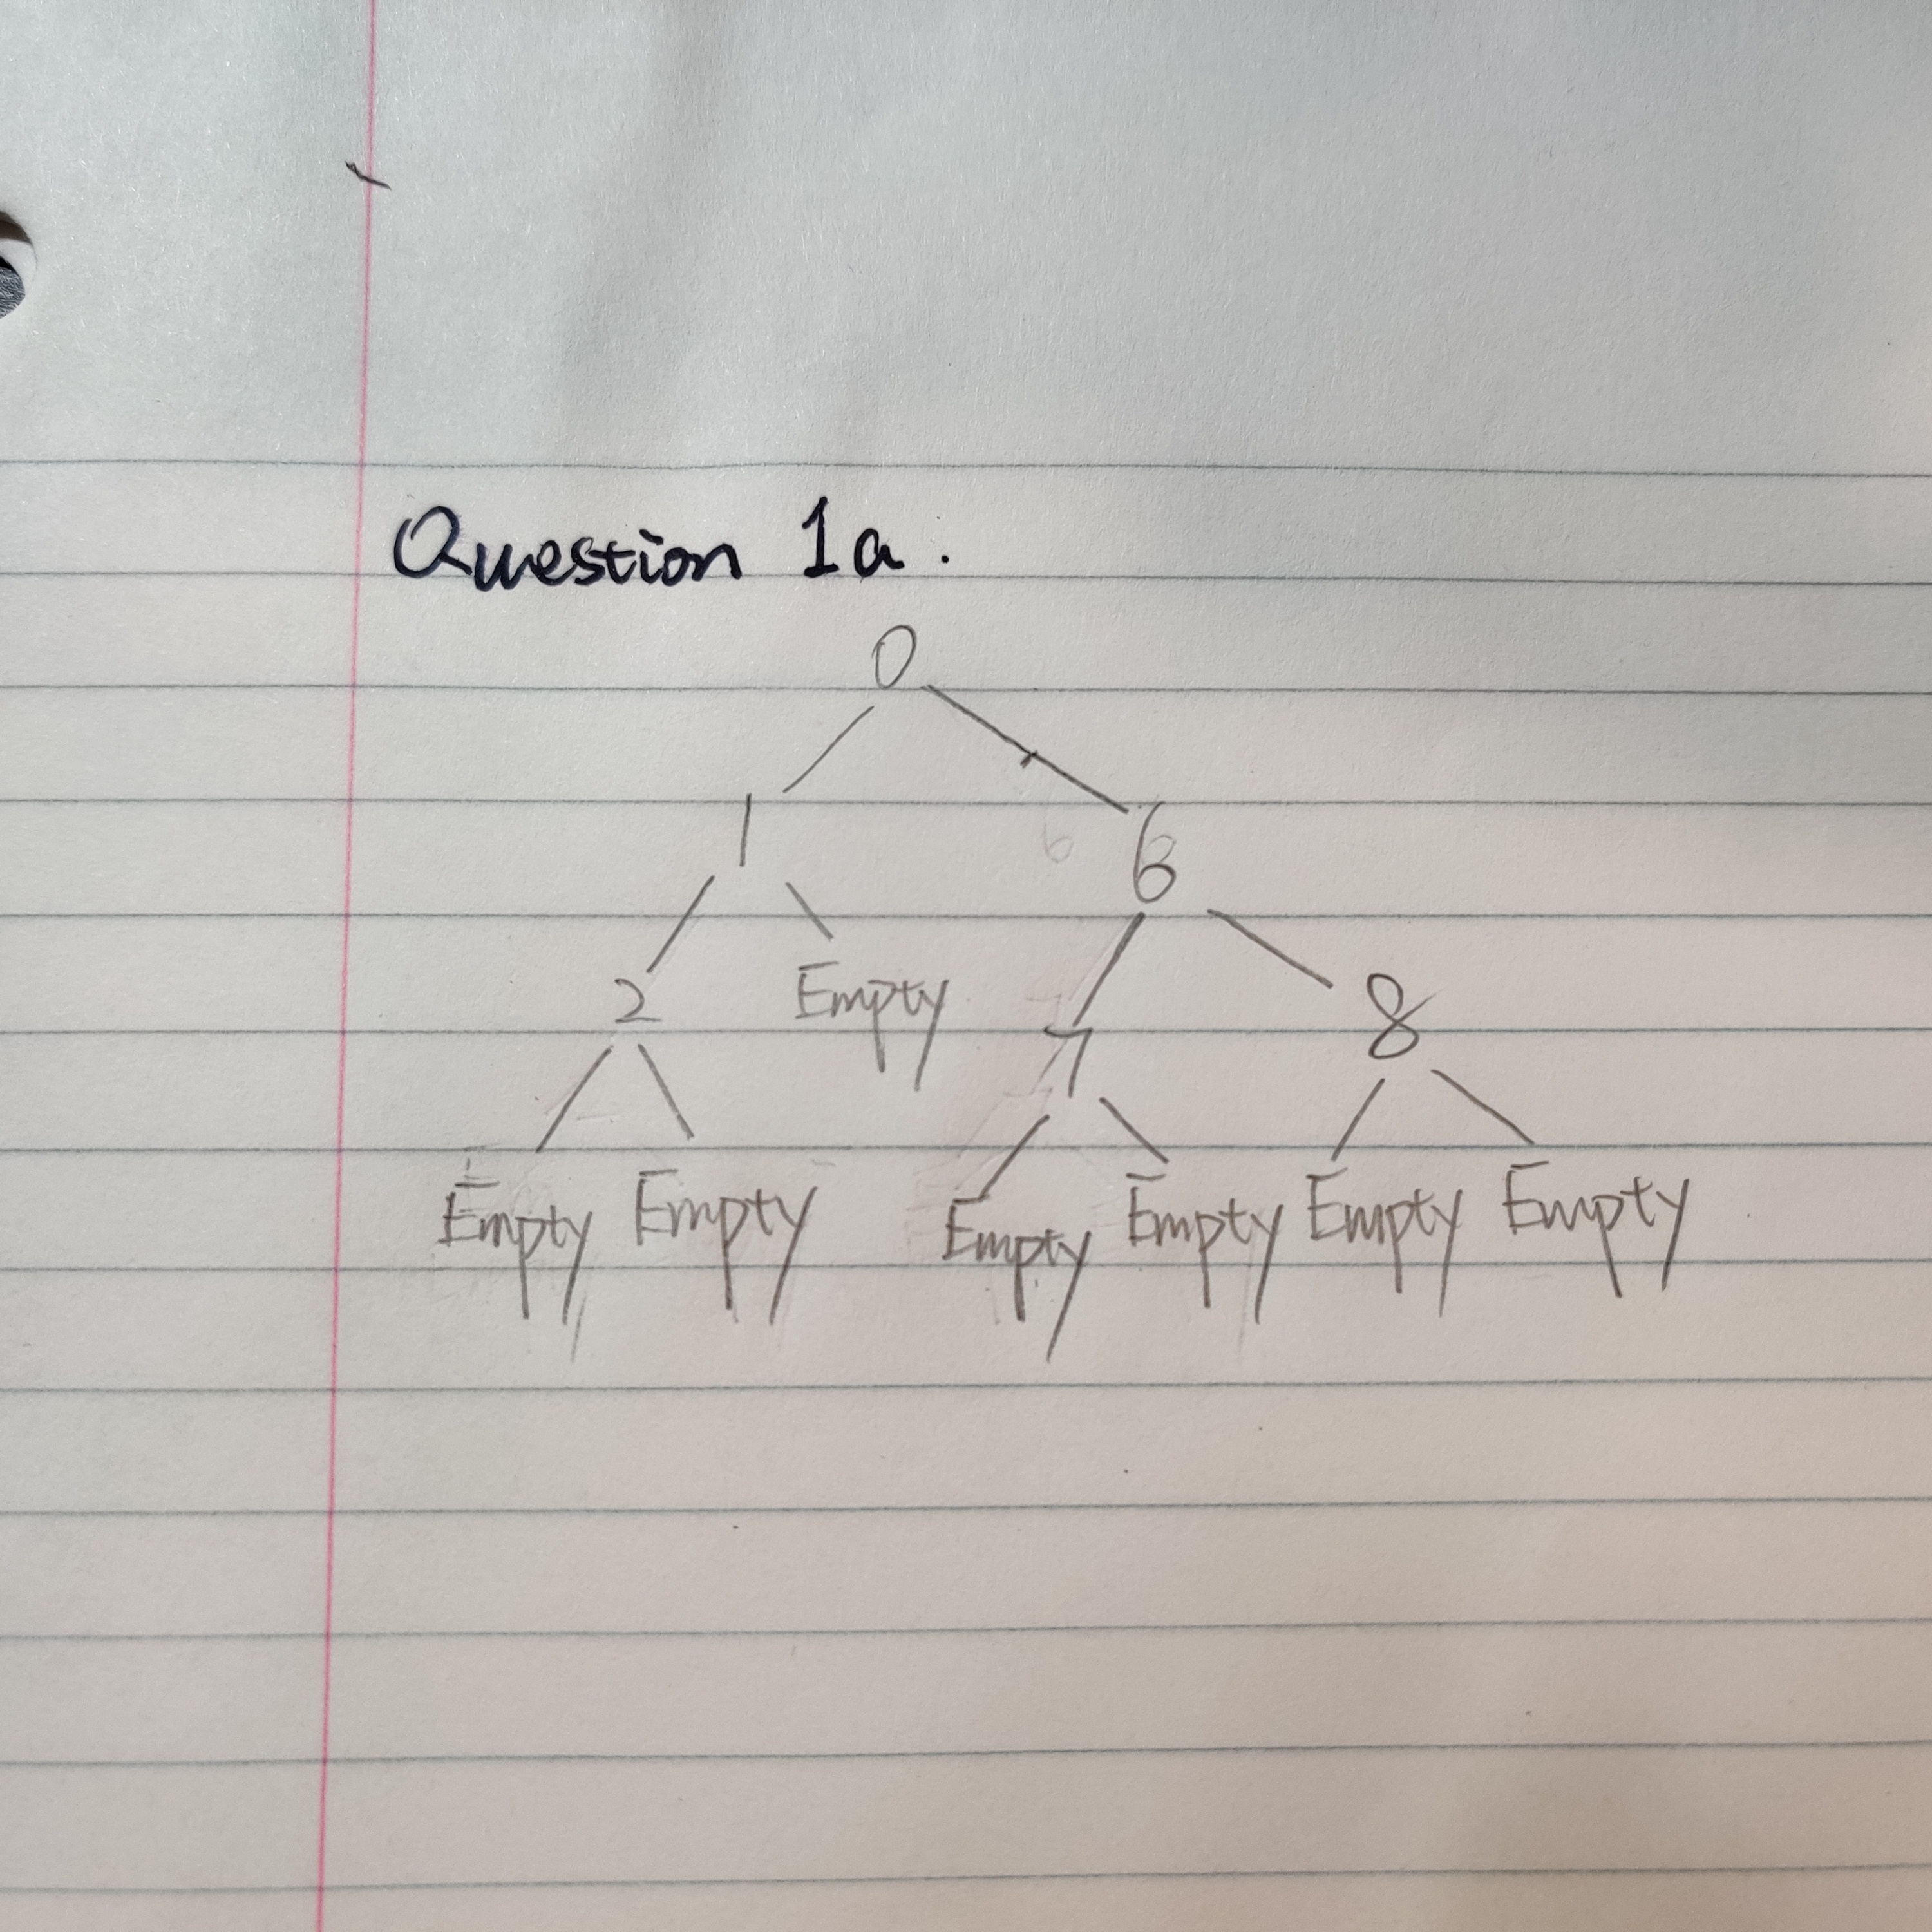 Question 1a.
0
1 6
2 Empty 7 8
Empty Empty Empty Empty Empty Empty